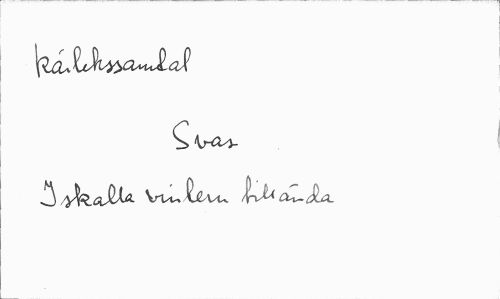 Kärlekssamtal
Svas
Iskalla vintern tillända